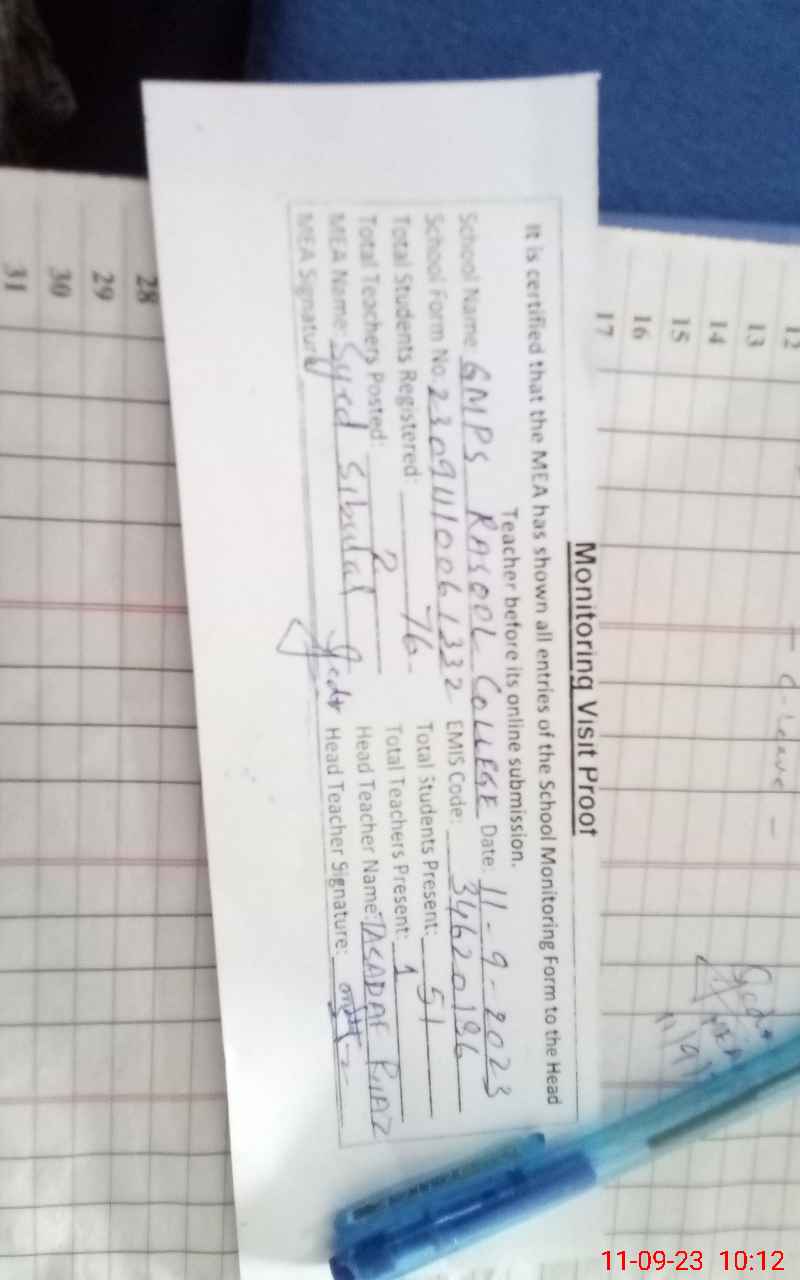 Monitoring Visit Proof
It is certified that the MEA has shown all entries of the School Monitoring Form to the Head
Teacher before its online submission.
School Name: GMPS RASOOL COLLEGE Date: 11-9-2023
School Form No: 2309410061332 EMIS Code: 34620196
Total Students Registered: 76 Total Students Present: 51
Total Teachers Posted: 2 Total Teachers Present: 1
MEA Name: Syed Head Teacher Name: RIAZ
MEA Signature Head Teacher Signature:
12
13
14
15
16
17
28
29
30
31
Leave -
11/9/
11-09-23 10:12